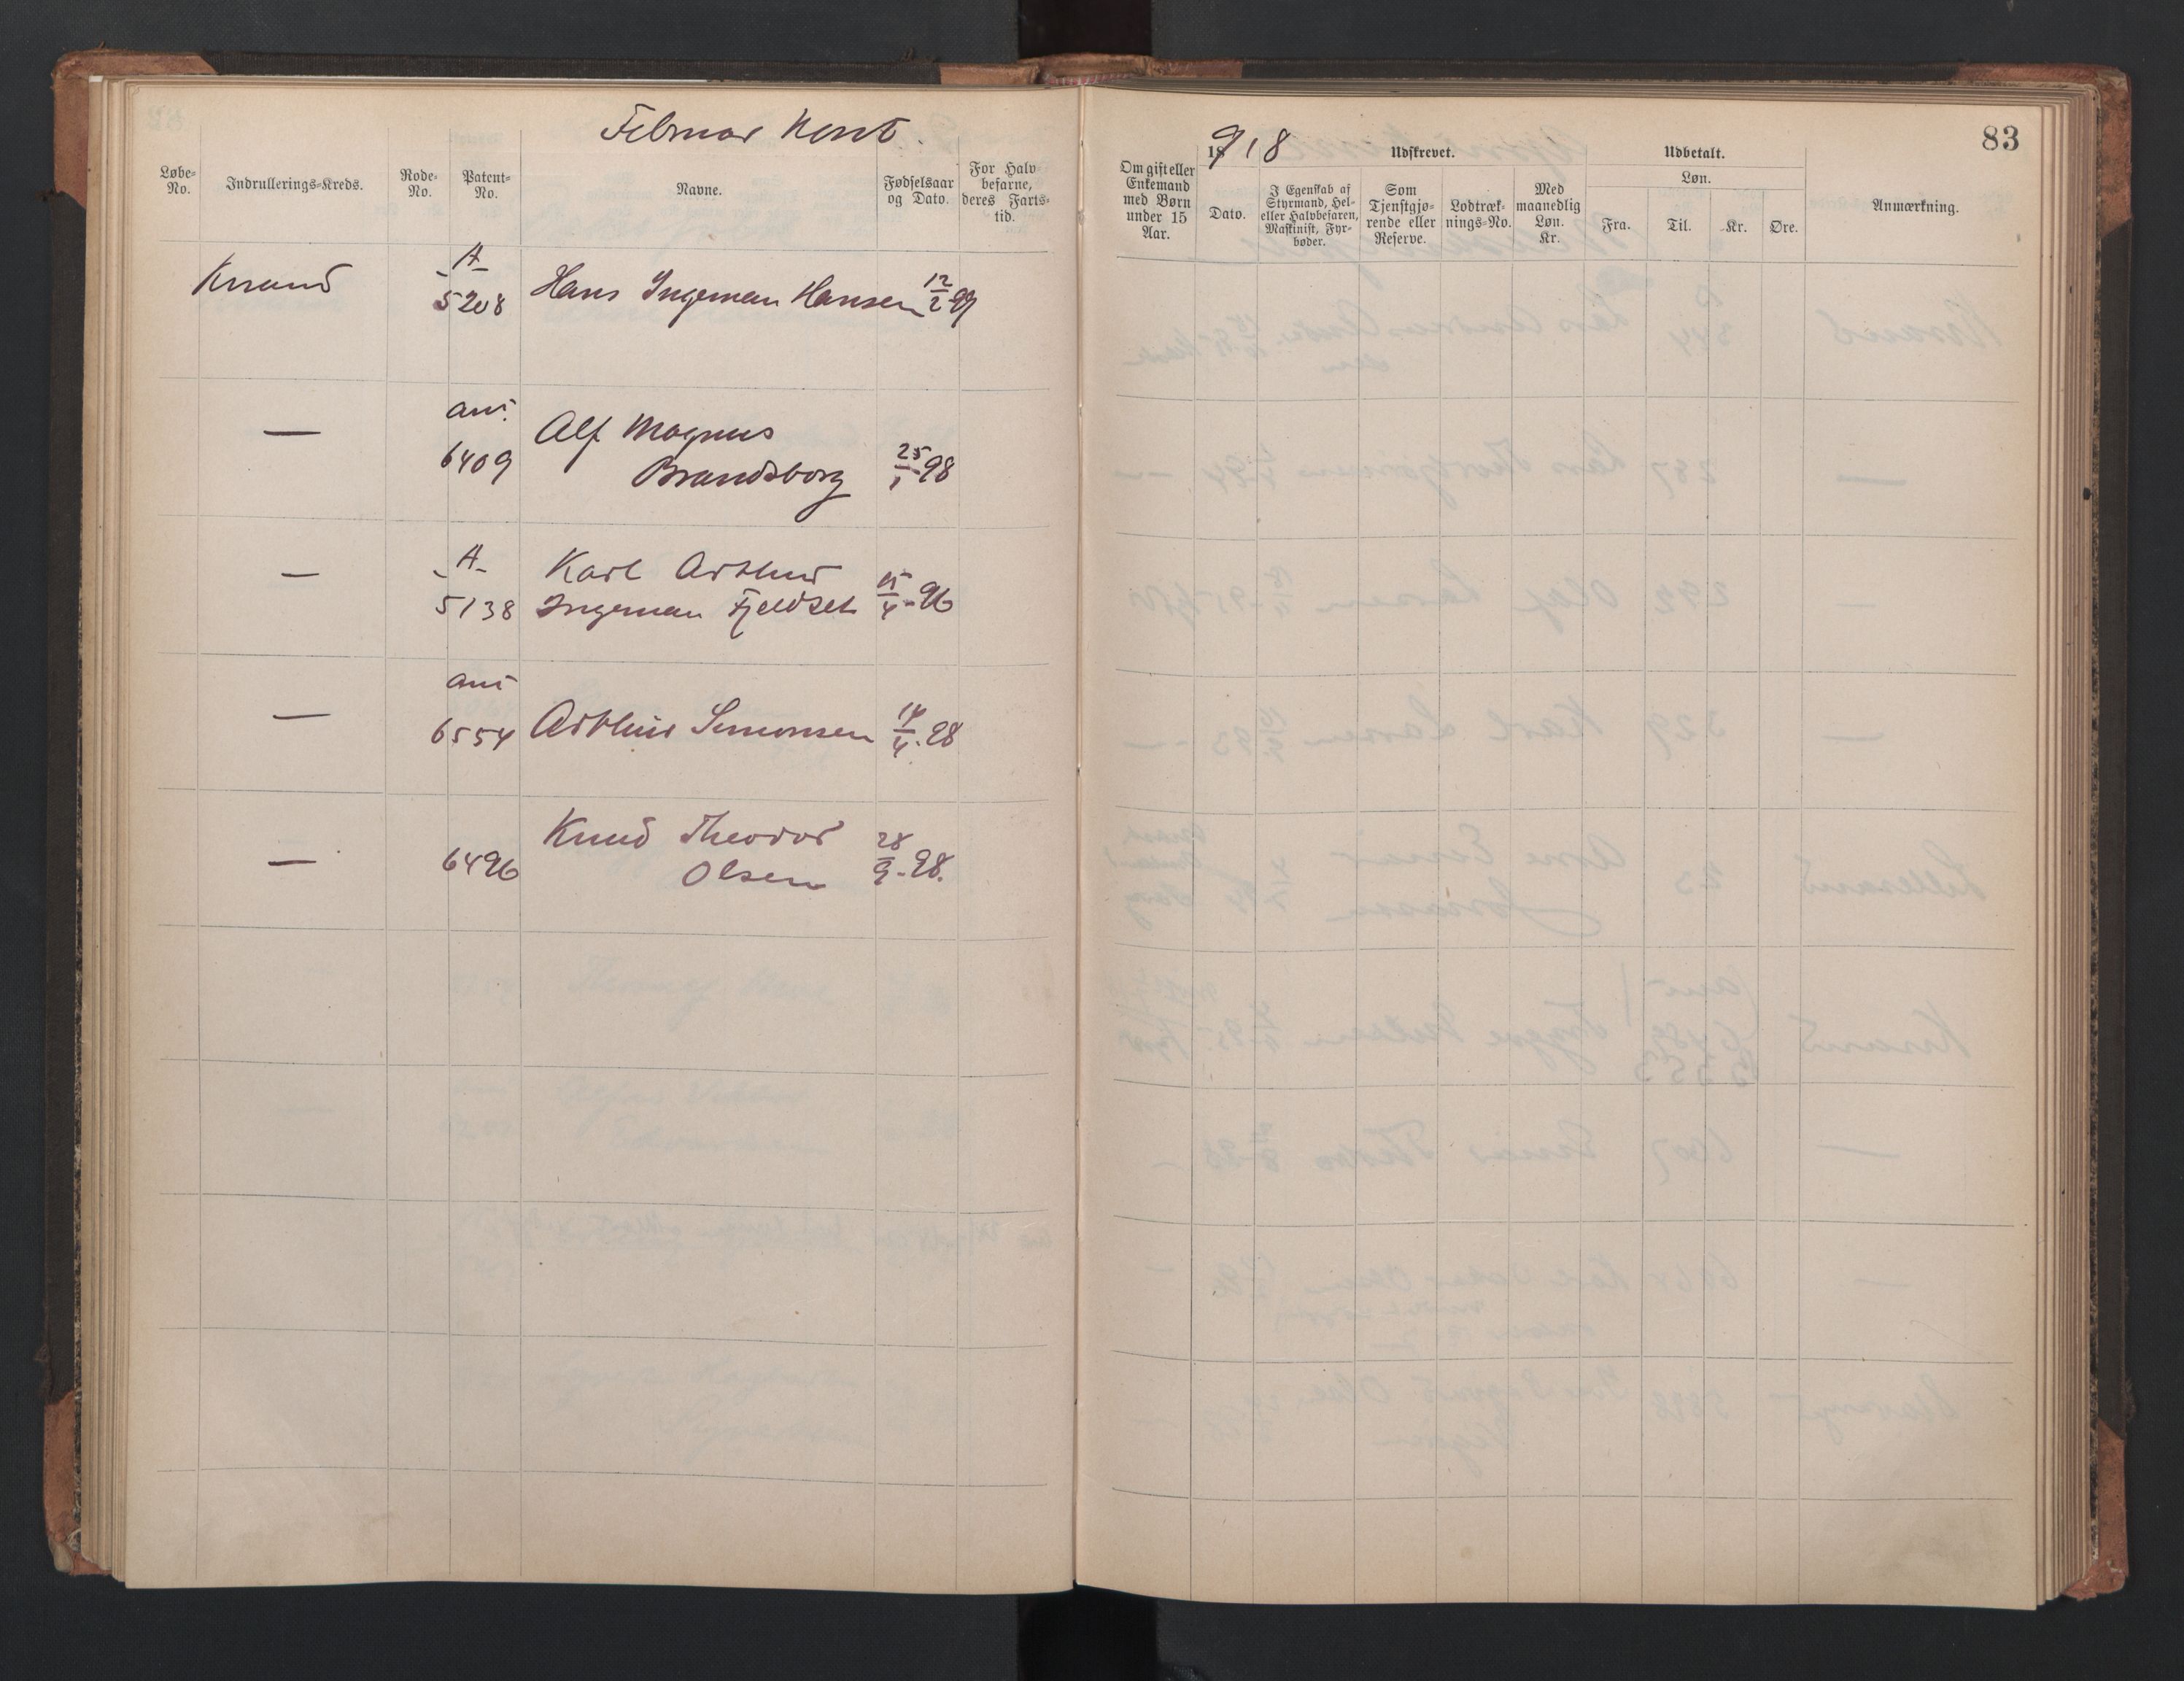 Februar
918
83
Løbe-No.
Indrullerings-Kreds.
Rode-No.
Patent-No.
Navne.
Fødselsaar og Dato.
For Halvbefarne, deres Fartstid.
Om gift eller Enkemand med Børn under 15 Aar.
18
Udskrevet.
Dato.
I Egenskab af Styrmand, Hel- eller Halvbefaren, Maskinist, Fyrbøder.
Som Tjenstgjørende eller Reserve.
Lodtræknings-No.
Med maanedlig Løn. Kr.
Udbetalt.
Løn.
Fra.
Til.
Kr.
Øre.
Anmærkning.
Krsand -A- 5208 Hans Ingeman Hansen 12/2 99
— 6409 Alf Magnus
Brandsborg 25/1 98
— -A- 5138 Karl Arthur
Ingeman Fjeldset 15/4-96
— 6554 Arthur Simonsen 14/4-98
— 6496 Knud Theodor
Olsen 28/9-98.